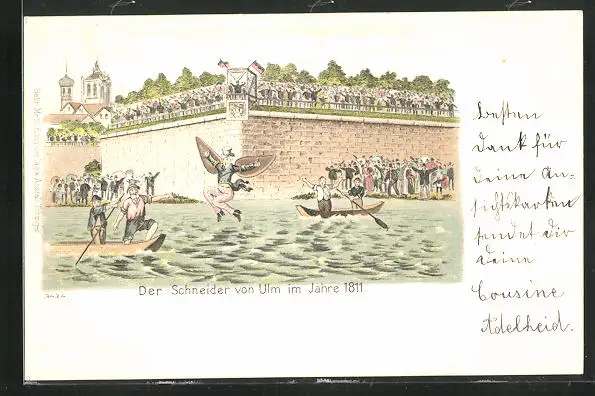 Der Schneider von Ulm im Jahre 1811
3424
Besten
Dank für
Deine An-
sichtskarten
sendet Dir
Deine
Cousine
Adelheid.